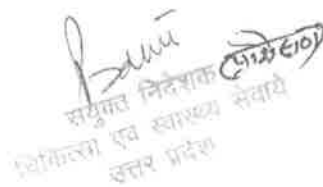 संयुक्त निदेशक
चिकित्सा एवं स्वास्थ्य सेवायें
उत्तर प्रदेश